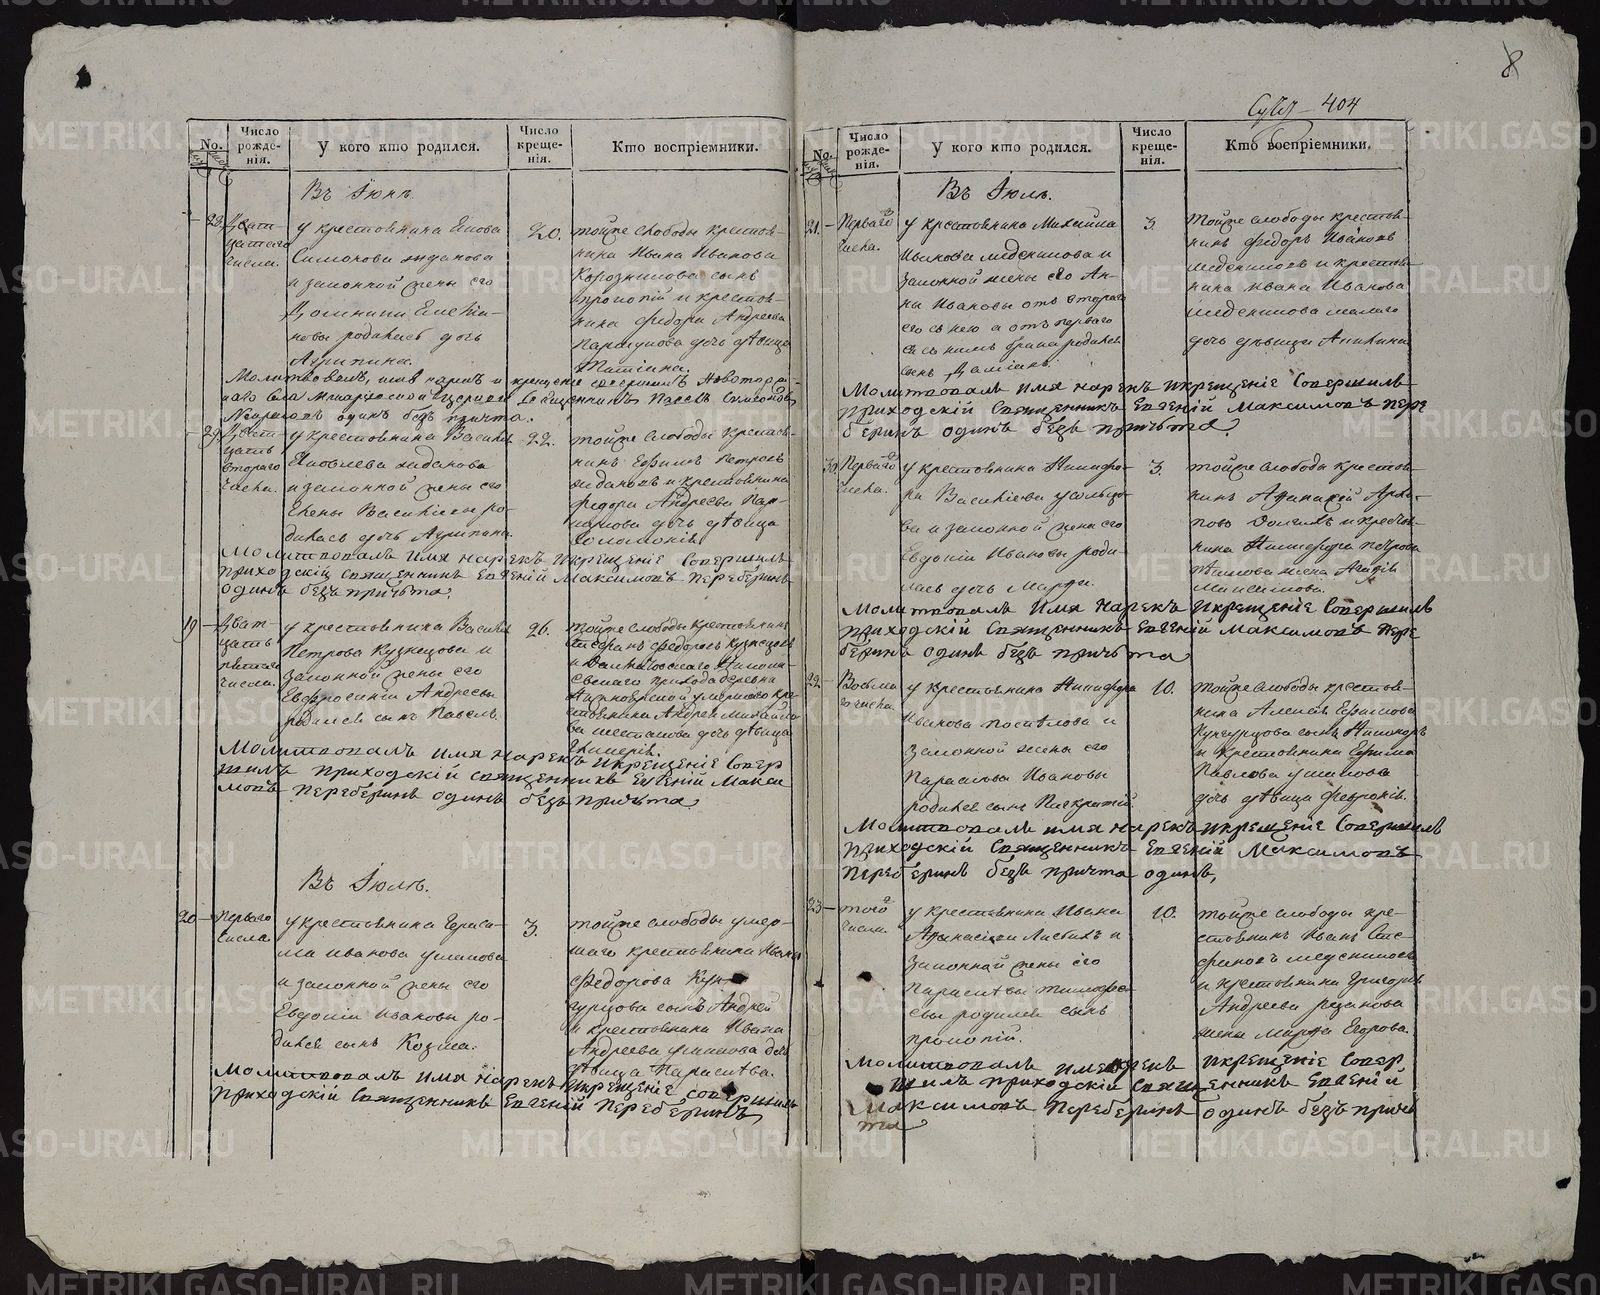 8
404
No.
Число рожде-нія.
У кого кто родился.
Число креще-нія.
Кто воспріемники.
Въ Іюнѣ.
28.
Дват-
цатаго
числа.
у крестьянина
Симонова жданова
и законной жены его
родилась дочь
Агрипина.
20.
тойже слободы крестья-
нина Ивана Иванова
сынъ
и крестья-
нина Федора Андреева
дочь дѣвица
имя нарекъ и крещеніе совершилъ
Священникъ
одинъ безъ причта.
29
Дват-
цать
втораго
числа.
у крестьянина Василья
Яковлева жданова
и законной жены его
Елены Васильевы ро-
дилась дочь Агрипина.
22.
тойже слободы крестья-
нинъ Ефимъ Петровъ
ждановъ и крестьянина
Федора Андреева
дочь дѣвица
Соломонія.
Молитвовалъ имя нарекъ и крещеніе Совершилъ
приходскій Священникъ Евгеній Максимовъ Переберинъ
одинъ безъ причьта.
19
Дват-
цать
пятаго
числа.
у крестьянина Василья
Петрова Кузнецова и
законной жены его
Евфросиніи Андреевы
родился сынъ Павелъ.
26.
тойже слободы крестьянинъ
Федоровъ Кузнецовъ
прихода деревни
умершаго кре-
стьянина Андрея Михайло-
ва дочь дѣвица
Гликерія.
Молитвовалъ имя нарекъ и крещеніе Совер
шилъ приходскій священникъ Евгеній Макси
мовъ Переберинъ одинъ безъ причьта
Въ Іюлѣ.
20
перваго
числа.
у крестьянина Гераси-
ма иванова ушакова
и законной жены его
Евдокіи ивановы ро-
дился сынъ Козма.
3.
тойже слободы умер-
шаго крестьянина Ивана
Федорова Кун-
гурцова сынъ Андрей
и крестьянина Ивана
Андреева ушакова дочь
дѣвица Параскѣва.
Молитвовалъ имя нарекъ и крещеніе совершилъ
приходскій Священникъ Евгеній Переберинъ
No.
Число рожде-нія.
У кого кто родился.
Число креще-нія.
Кто воспріемники.
Въ Іюлѣ.
21.
Перваго
числа.
у крестьянина Михайла
Иванова медсникова и
законной жены его Ан-
ны Ивановы отъ втораго
его съ нею а отъ перваго
ея съ нимъ брака родился
сынъ Даміанъ.
3.
тойже слободы крестья-
нинъ Федоръ Ивановъ
и крестья-
нина Ивана Иванова
медсникова малаго
дочь дѣвица
Молитвовалъ Имя нарекъ и крещеніе Совершилъ
приходскій Священникъ Евгеній Максимовъ Пере
беринъ одинъ безъ причьта.
30
Перваго
числа.
у крестьянина Никифо-
ра Васильева усольцо-
ва и законной жены его
Евдокіи Ивановы роди-
лась дочь Марфа.
3.
тойже слободы крестья-
нинъ Афанасій Архи-
повъ и крестья-
нина Никифора петрова
жена Агафія
Максимова.
Молитвовалъ Имя Нарекъ и крещеніе Совершилъ
приходскій Священникъ Евгеній Максимовъ Пере
беринъ одинъ безъ причьта
22
Восьма
го числа.
у крестьянина Никифора
Иванова поспѣлова и
законной жены его
Парасковы Ивановы
родился сынъ Панкратій.
10.
тойже слободы крестья-
нина Алексѣя Ефимова
Кунгурцова сынъ Никаноръ
и крестьянина Ефима
Павлова ушакова
дочь дѣвица Февронія.
Молитвовалъ имя нарекъ и крещеніе Совершилъ
приходскій Священникъ Евгеній Максимовъ
Переберинъ безъ причта одинъ,
23
того
числа.
у крестьянина Ивана
Афанасьева и
законной жены его
Параскѣвы тимофее-
вы родился сынъ
прокопій.
10.
тойже слободы кре-
стьянинъ Иванъ Сте-
фановъ медсниковъ
и крестьянина Григорья
Андреева резанова
жена Марфа Егорова.
Молитвовалъ имя нарекъ и крещеніе Совер
шилъ приходскій Священникъ Евгеній
Максимовъ Переберинъ одинъ безъ причь
та
METRIKI.GASO-URAL.RU